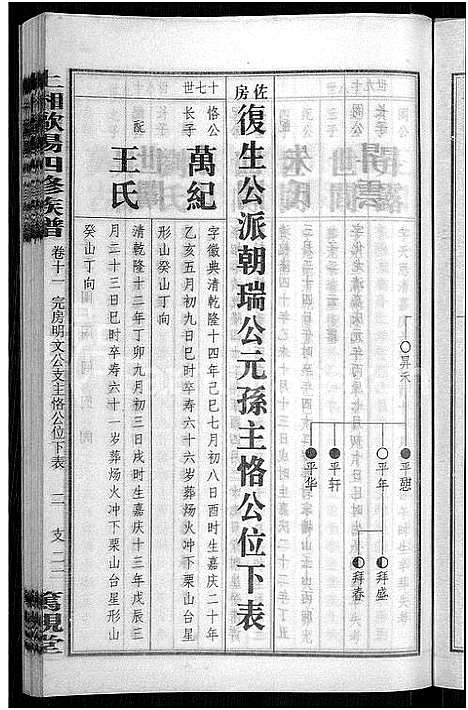 昇永
平憇
平年
平轩
平华
拜盛
拜春
佐房
復生公派朝瑞公元孫主恪公位下表
十七世
恪公長子
萬紀
字徽典清乾隆十四年己巳七月初八日酉时生嘉庆二十年
乙亥五月初九日巳时卒寿六十六岁葬炀火冲下栗山台星
形山癸山丁向
配
王氏
清乾隆十二年丁卯九月初三日戌时生嘉庆十三年戊辰三
月二十三日巳时卒寿六十一岁葬炀火冲下栗山台星形山
癸山丁向
上湘歐陽四修族譜
卷十一
完房明文公支主恪公位下表
二
支二二
篤親堂